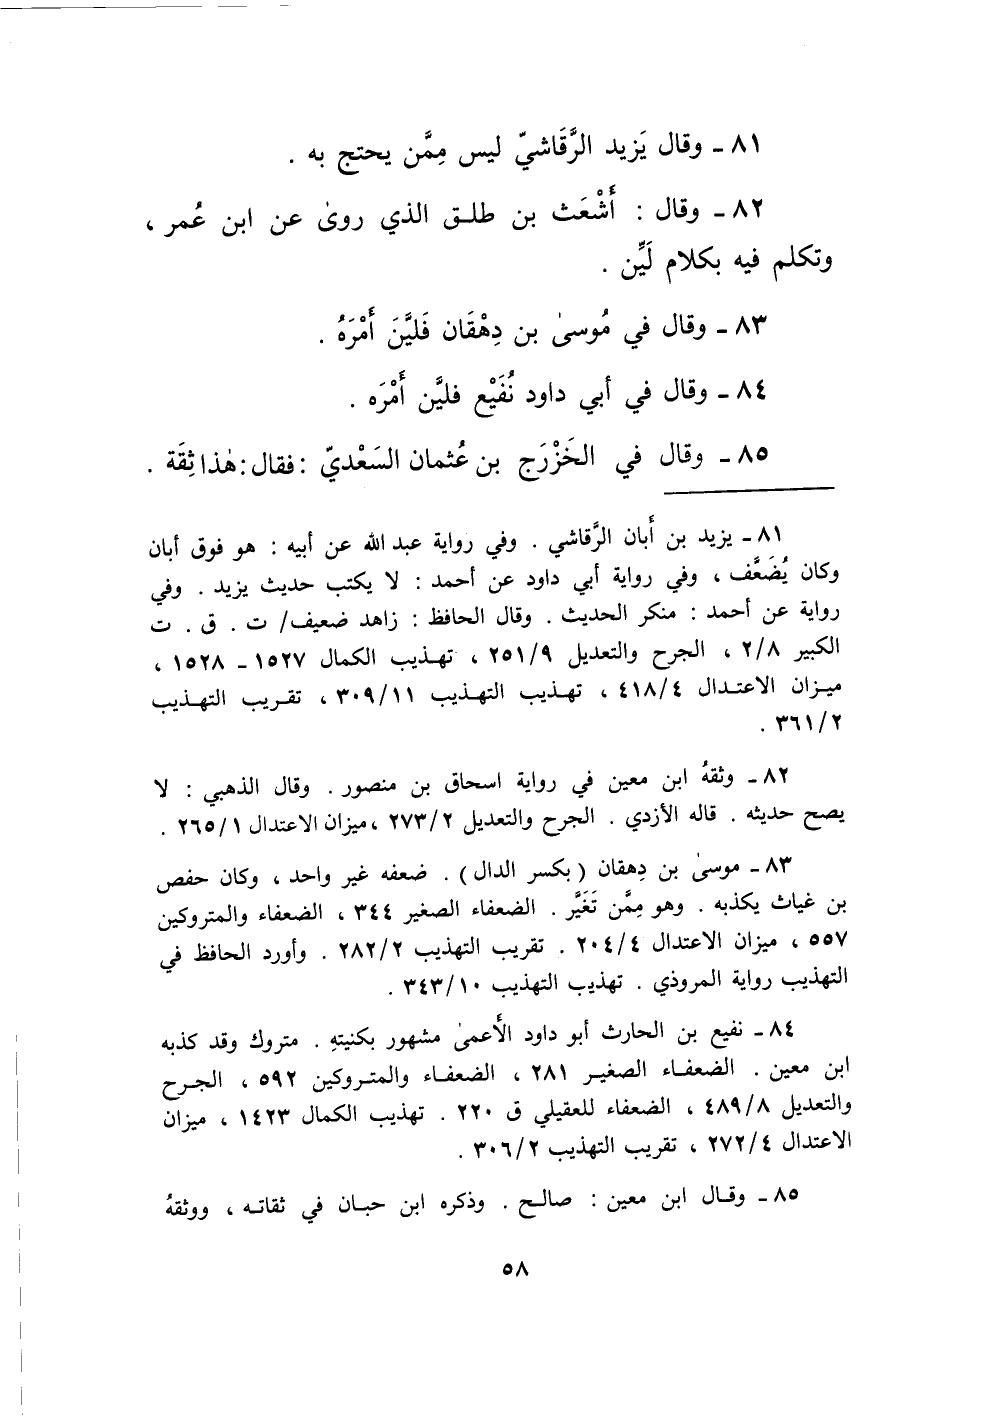 ٨١ - وقال يَزيد الرَّقَاشيّ ليس مِمَّن يحتج به .
٨٢ - وقال : أَشْعَث بن طلـق الذي روىٰ عن ابن عُمر ،
وتكلم فيه بكلام لَيِّن .
٨٣ - وقال في مُوسىٰ بن دِهْقَان فَليَّنَ أَمْرَهُ .
٨٤ - وقال في أبي داود نُفَيْع فليَّن أَمْرَه .
٨٥ - وقال في الخَزْرَج بن عُثمان السَعْديّ : فقال : هٰذا ثِقَة .
٨١ - يزيد بن أَبان الرَّقاشي . وفي رواية عبد الله عن أبيه : هو فوق أبان
وكان يُضَعَّف ، وفي رواية أبي داود عن أحمد : لا يكتب حديث يزيد . وفي
رواية عن أحمد : منكر الحديث . وقال الحافظ : زاهد ضعيف/ ت . ق . ت
الكبير ٢/٨ ، الجرح والتعديل ٢٥١/٩ ، تهـذيب الكمال ١٥٢٧ - ١٥٢٨ ،
ميـزان الاعتـدال ٤١٨/٤ ، تهـذيب التهـذيب ٣٠٩/١١ ، تقـريب التهـذيب
٣٦١/٢ .
٨٢ - وثقهُ ابن معين في رواية اسحاق بن منصور . وقال الذهبي : لا
يصح حديثه . قاله الأزدي . الجرح والتعديل ٢٧٣/٢ ، ميزان الاعتدال ٢٦٥/١ .
٨٣ - موسىٰ بن دِهقان ( بكسر الدال ) . ضعفه غير واحد ، وكان حفص
بن غياث يكذبه . وهو مِمَّن تَغَيَّر . الضعفاء الصغير ٣٤٤ ، الضعفاء والمتروكين
٥٥٧ ، ميزان الاعتدال ٢٠٤/٤ . تقريب التهذيب ٢٨٢/٢ . وأورد الحافظ في
التهذيب رواية المروذي . تهذيب التهذيب ٣٤٣/١٠ .
٨٤ - نفيع بن الحارث أبو داود الأَعمىٰ مشهور بكنيتهِ . متروك وقد كذبه
ابن معين . الضعفـاء الصغيـر ٢٨١ ، الضعفـاء والمتـروكين ٥٩٢ ، الجـرح
والتعديل ٤٨٩/٨ ، الضعفاء للعقيلي ق ٢٢٠ . تهذيب الكمال ١٤٢٣ ، ميزان
الاعتدال ٢٧٢/٤ ، تقريب التهذيب ٣٠٦/٢ .
٨٥ - وقـال ابن معين : صالـح . وذكره ابن حبـان في ثقاتـه ، ووثقهُ
٥٨